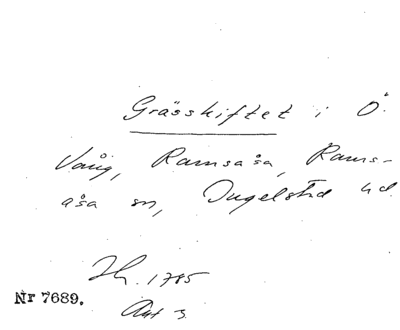 Grässkiftet i Ö.
Vång, Ramsåsa, Rams-
åsa sn, Ingelstad hd.
1785
Nr 7689.
Akt 3